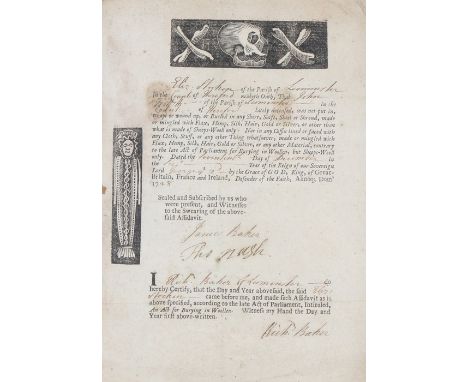 Eliz of the Parish of Leominster
in the County of maketh Oath, That John
of the Parish of Leominster in the
County of lately deceased, was not put in,
wrapt or wound up, or Buried in any Shirt, Shift, Sheet or Shroud, made
or mingled with Flax, Hemp, Silk, Hair, Gold or Silver, or other than
what is made of Sheeps-Wool only: Nor in any Coffin lined or faced with
any Cloth, Stuff, or any other Thing whatsoever, made or mingled with
Flax, Hemp, Silk, Hair, Gold or Silver, or any other Material, contrary
to the late Act of Parliament for Burying in Woollen, but Sheeps-Wool
only. Dated the Day of in the
Year of the Reign of our Sovereign
Lord George by the Grace of GOD, King, of Great-
Britain, France and Ireland, Defender of the Faith, Annoq; Dom'
1728
Sealed and Subscribed by us who
were present, and Witnesses
to the Swearing of the above-
said Affidavit.
Jane Baker
Tho Nash
I Rich Baker of Leominster do
hereby Certify, that the Day and Year abovesaid, the said Eliz
came before me, and made such Affidavit as is
above specified, according to the late Act of Parliament, Intituled,
An Act for Burying in Woollen. Witness my Hand the Day and
Year first above-written.
Rich Baker